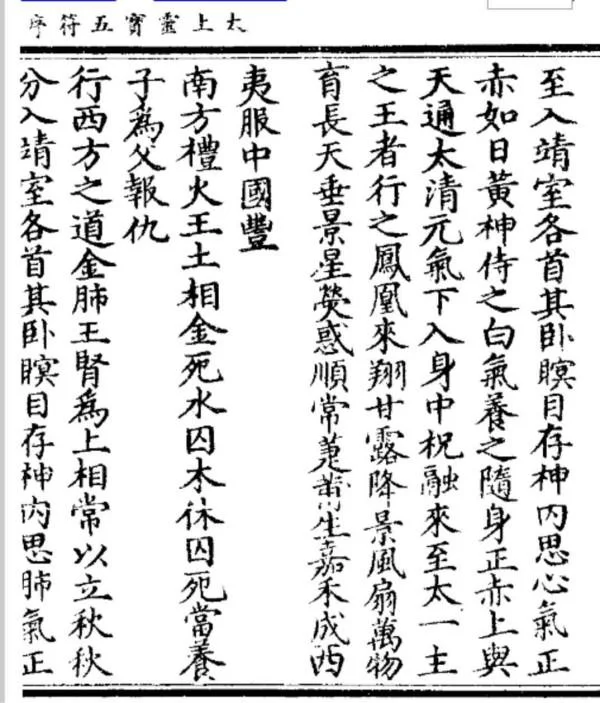 太上靈寶五符序
至入靖室各首其卧瞑目存神内思心氣正
赤如日黃神侍之白氣養之隨身正赤上與
天通太清元氣下入身中祝融來至太一主
之王者行之鳳凰來翔甘露降景風扇萬物
育長天垂景星熒惑順常蓂莆生嘉禾成西
夷服中國豐
南方禮火王土相金死水囚木休囚死當養
子為父報仇
行西方之道金肺王腎為上相常以立秋秋
分入靖室各首其卧瞑目存神内思肺氣正